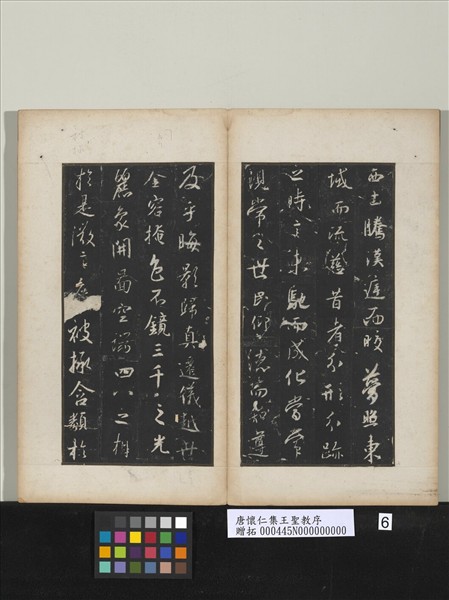 西土騰漢庭而皎夢照東
域而流慈昔者分形分跡
之時言未馳而成化當常
現常之世民仰德而知遵
及乎晦影歸真遷儀越世
金容掩色不鏡三千之光
麗象開圖空端四八之相
於是微言被拯含類於
唐懷仁集王聖教序
贈拓 000445N000000000
6